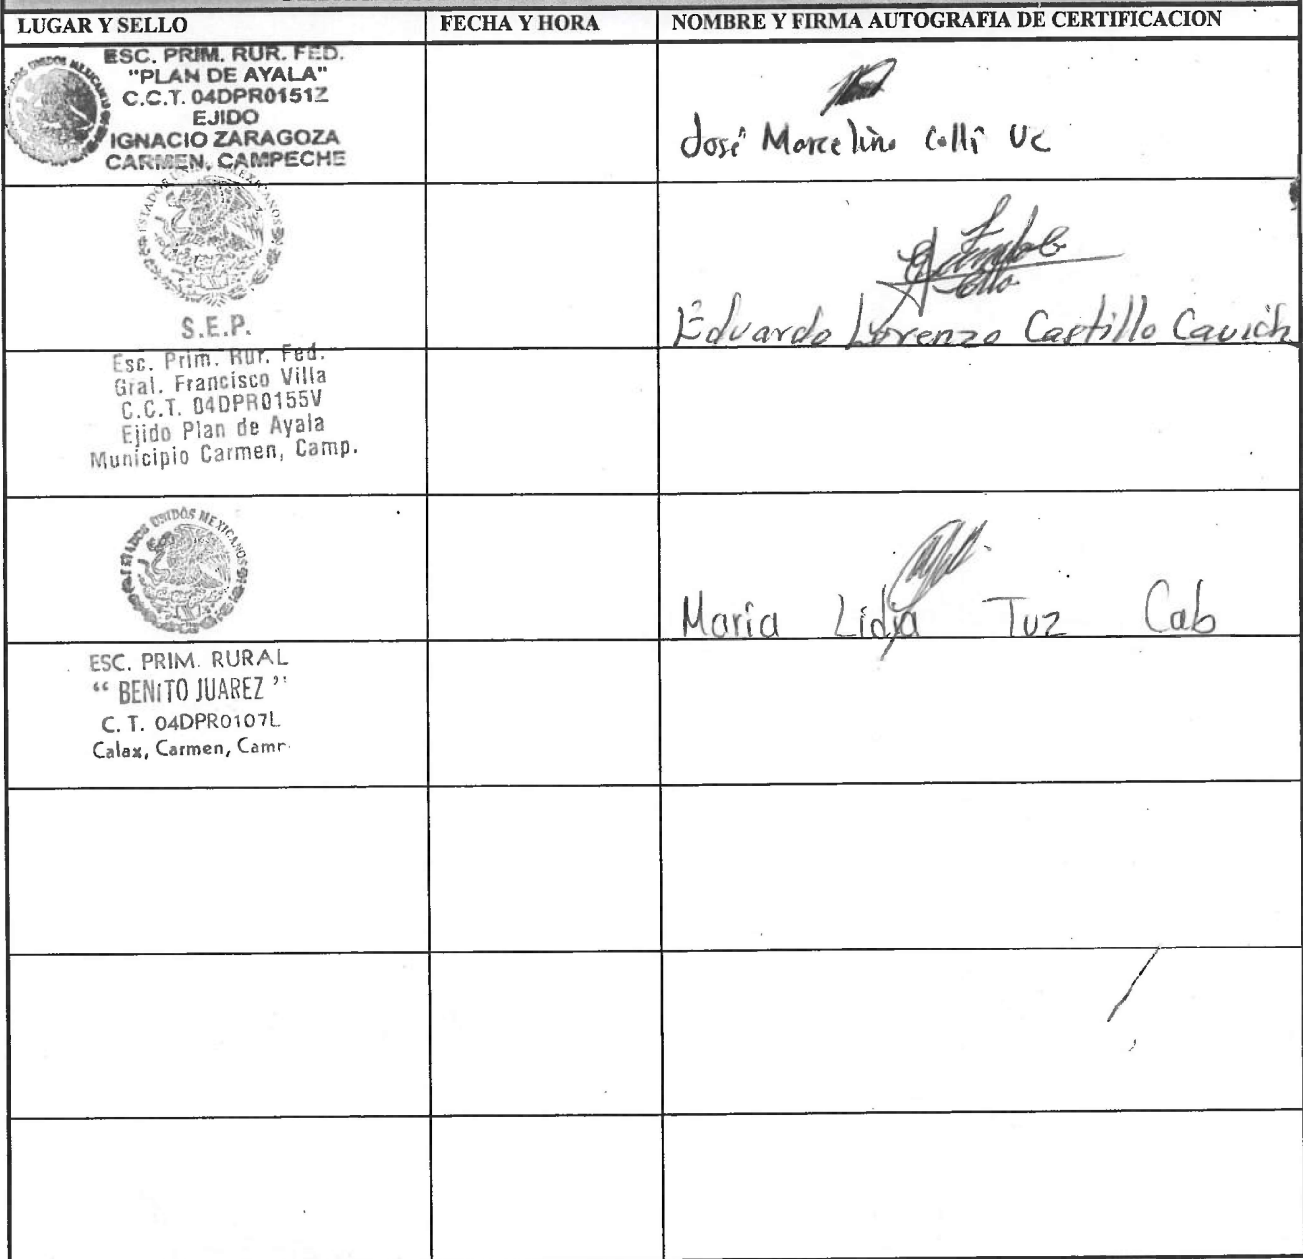 LUGAR Y SELLO
FECHA Y HORA
NOMBRE Y FIRMA AUTOGRAFIA DE CERTIFICACION
ESTADOS UNIDOS MEXICANOS
ESC. PRIM. RUR. FED.
"PLAN DE AYALA"
C.C.T. 04DPR0151Z
EJIDO
IGNACIO ZARAGOZA
CARMEN, CAMPECHE
José Marcelino Collí Uc
ESTADOS UNIDOS MEXICANOS
S.E.P.
Eduardo Lorenzo Castillo Cauich
Esc. Prim. Rur. Fed.
Gral. Francisco Villa
C.C.T. 04DPR0155V
Ejido Plan de Ayala
Municipio Carmen, Camp.
ESTADOS UNIDOS MEXICANOS
María Lidia Tuz Cab
ESC. PRIM. RURAL
“ BENITO JUAREZ ”
C. T. 04DPR0107L
Calax, Carmen, Camp.